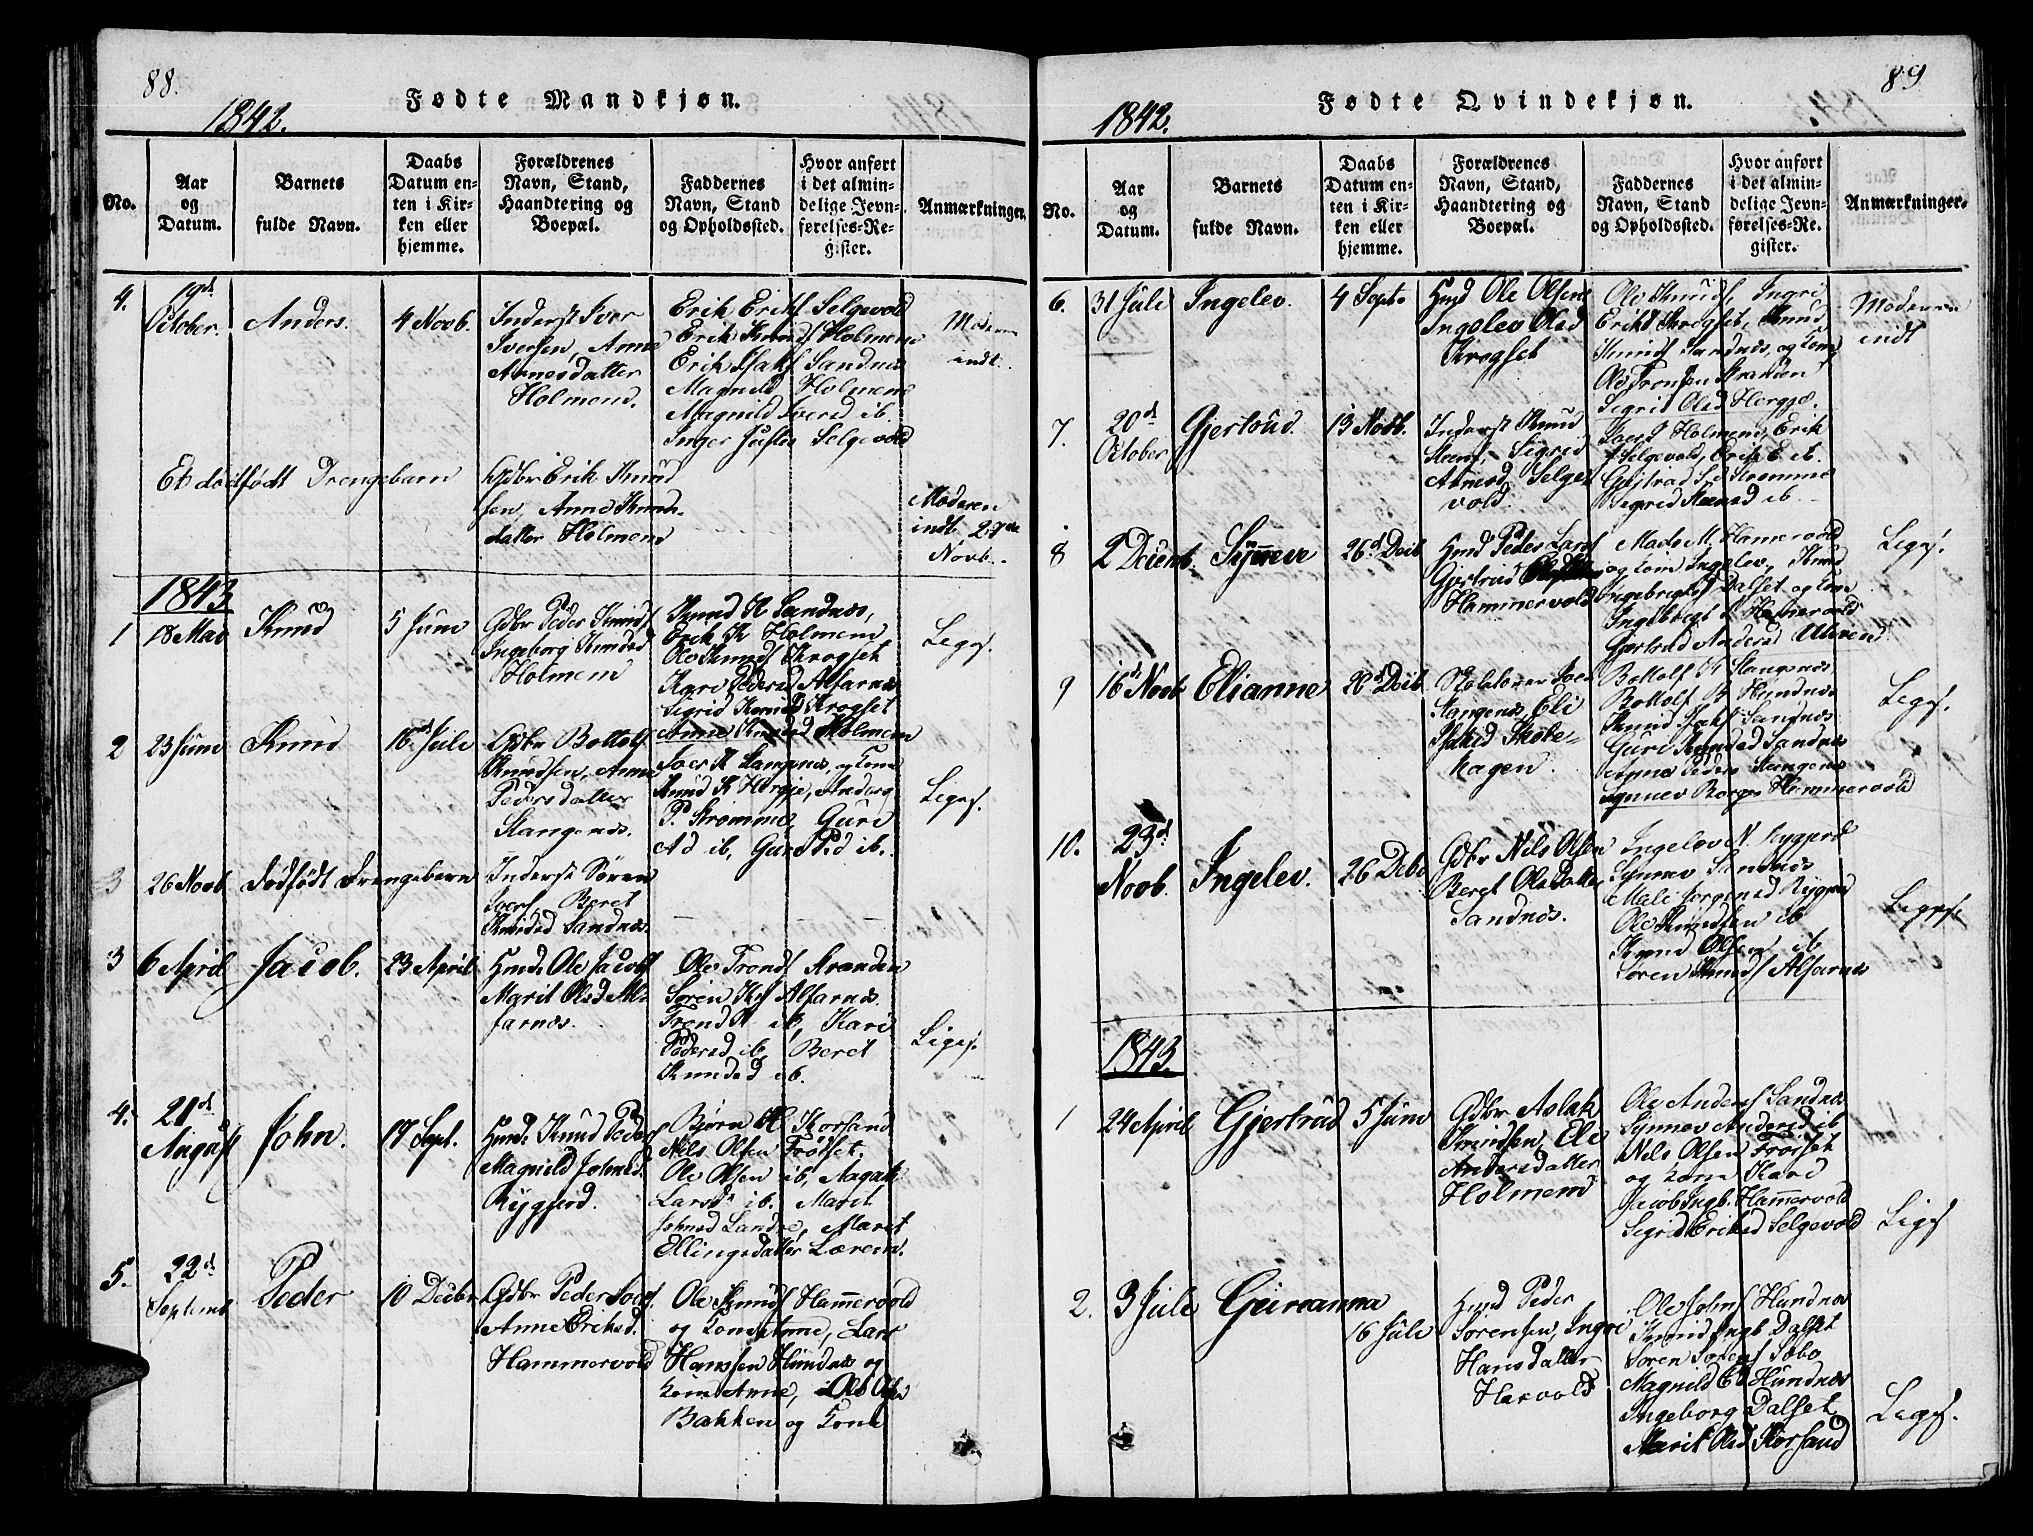 88.
Fødte Mandkjøn.
1842.
No.
Aar
og
Datum.
Barnets
fulde Navn.
Daabs
Datum en-
ten i Kir-
ken eller
hjemme.
Forældrenes
Navn, Stand,
Haandtering og
Boepæl.
Faddernes
Navn, Stand
og Opholdssted.
Hvor anført
i det almin-
delige Jevn-
førelses-Re-
gister.
Anmærkninger.
4.
19de
October.
Anders.
4 Novb.
Inderst Iver
Iversen, Anne
Arnesdatter
Holmem.
Erik Eriks Selgevold
Erik Knuds Holmem
Erik Isaks Sandnes
Magnild Holmem
Magnild Iversd ib.
Inger Selgevold
Moderen
indt.
Et dödfödt Drengebarn
Gdbr Erik Knud
sen, Anne Knuds-
datter Holmem
Moderen
indt. 27de
Novb.
1843
1
18 Mai
Knud
5 Juni
Gdbr Peder Knuds
Ingeborg Knudsd
Holmem
Knud K Sandnes,
Erik K Holmem
Ole Knuds Krogset
Kari Pedersd Alfarnes
Sigrid Knudsd Krogset
Anne Knudsd Holmem
Legif.
2
23 Juni
Knud
16de Juli
Gdbr Bottolf
Knudsen, Anne
Pedersdatter
Stangenes.
Joer K Langenes, og Kone
Knud K Hergje, Anders
P. Strømme, Guri
Ad ib, Guri Pd ib.
Legif.
3
26 Novb
Dödfödt Drengebarn
Inderst Sören
Ivers, Beret
Knudsd Sandnes.
3
6 April
Jacob.
23 April
Hmd. Ole Jacobs
Marit Olsd Al-
farnes.
Ole Tronds Stranden
Sören Ks Alfarnes.
Trond K ib, Kari
Pedersd ib, Beret
Knudsd ib.
Legif.
4.
21de
August
John.
17 Sept.
Hmd. Knud Peders
Magnild Johnsd.
Rygjerd.
Bjørn H Korsand
Nils Olsen Frödset.
Ole Olsen ib, Aagath
Larsd ib. Marit
Johnsd Landre, Marit
Ellingsdatter Lærem.
5.
22de
Septemb
Peder
10 Decbr
Gdbr Peder Joers.
Anne Eriksd.
Hammervold
Ole Knuds Hammervold
og Kone Anne, Lars
Hanssen Hundnes og
Kone Anne, Ole Ols
Bakken og Kone
89
Fødte Qvindekjøn.
1842.
No.
Aar
og
Datum.
Barnets
fulde Navn.
Daabs
Datum en-
ten i Kir-
ken eller
hjemme.
Forældrenes
Navn, Stand,
Haandtering og
Boepæl.
Faddernes
Navn, Stand
og Opholdssted.
Hvor anført
i det almin-
delige Jevn-
førelses-Re-
gister.
Anmærkninger.
6.
31 Juli
Ingelev.
4 Sept.
Hmd Ole Olsen
Ingelev Olsd
Krogset
Ole Knuds, Ingri
Eriksd Krogset, Knud
Knuds Sandnes, og Kone
Ole Tronsen Stranden
Sigrid Olsd Hergje.
Moderen
indt
7.
20de
October
Gjertrud.
13 Novb.
Inderst Knud
Steens, Sigrid
Arnesd Selge-
vold.
Holmem, Erik
Selgevold, Erik E ib.
Gjertrud Strømme
Sigrid Steensd ib.
8
2 Decemb.
Synneve
26de Decb
Hmd Peder Lars
Gjertrud
Hammervold
Mads M. Hamervold
og Kone Ingelev, Knud
Ingebrigts Dalset og Kone
Ingebrigt Hamervold
Gjertrud Andersd
Legif.
9
16de Novb
Elianne
26de Decb
Joer
Stangenes, Eli
Isaksd Skobe-
hagen.
Bottolf K Stangenes
Bottolf B Hundnes
Knud Isaks Sandnes
Guri Knudsd Sandnes
Peders Stangenes
Synnev Hammervold
Legif.
10.
23de
Novb.
Ingelev.
26 Decb
Gdbr Nils Olsen
Beret Olsdatter
Sandnes.
Ingelev N. Rygjerd
Synnev Sandnes
Mali Jorgensd Rygjerd
Ole Knudsen ib
Knud Olsen ib
Sören Knuds Alfarnes
Legif.
1843.
1
24 April
Gjertrud
5 Juni
Gdbr Aslak
Knudsen, Eli
Andersdatter
Holmem
Ole Anders Sandnes
Synnev Andersd ib
Nils Olsen Frödset
og Kone Kari
Jacob Ingb. Hamervold
Sigrid Eriksd Selgevold
Legif
2.
3 Juli
Gurianna
16 Juli
Hmd Peder
Sörensen, Inger
Hansdatter
Harvold
Ole Johns Hundnes
Knud Ingb Dalset
Sören Sörens Sobo
Magnild Ed Hundnes
Ingeborg Dalset
Marit Olsd Korsand
Legif.